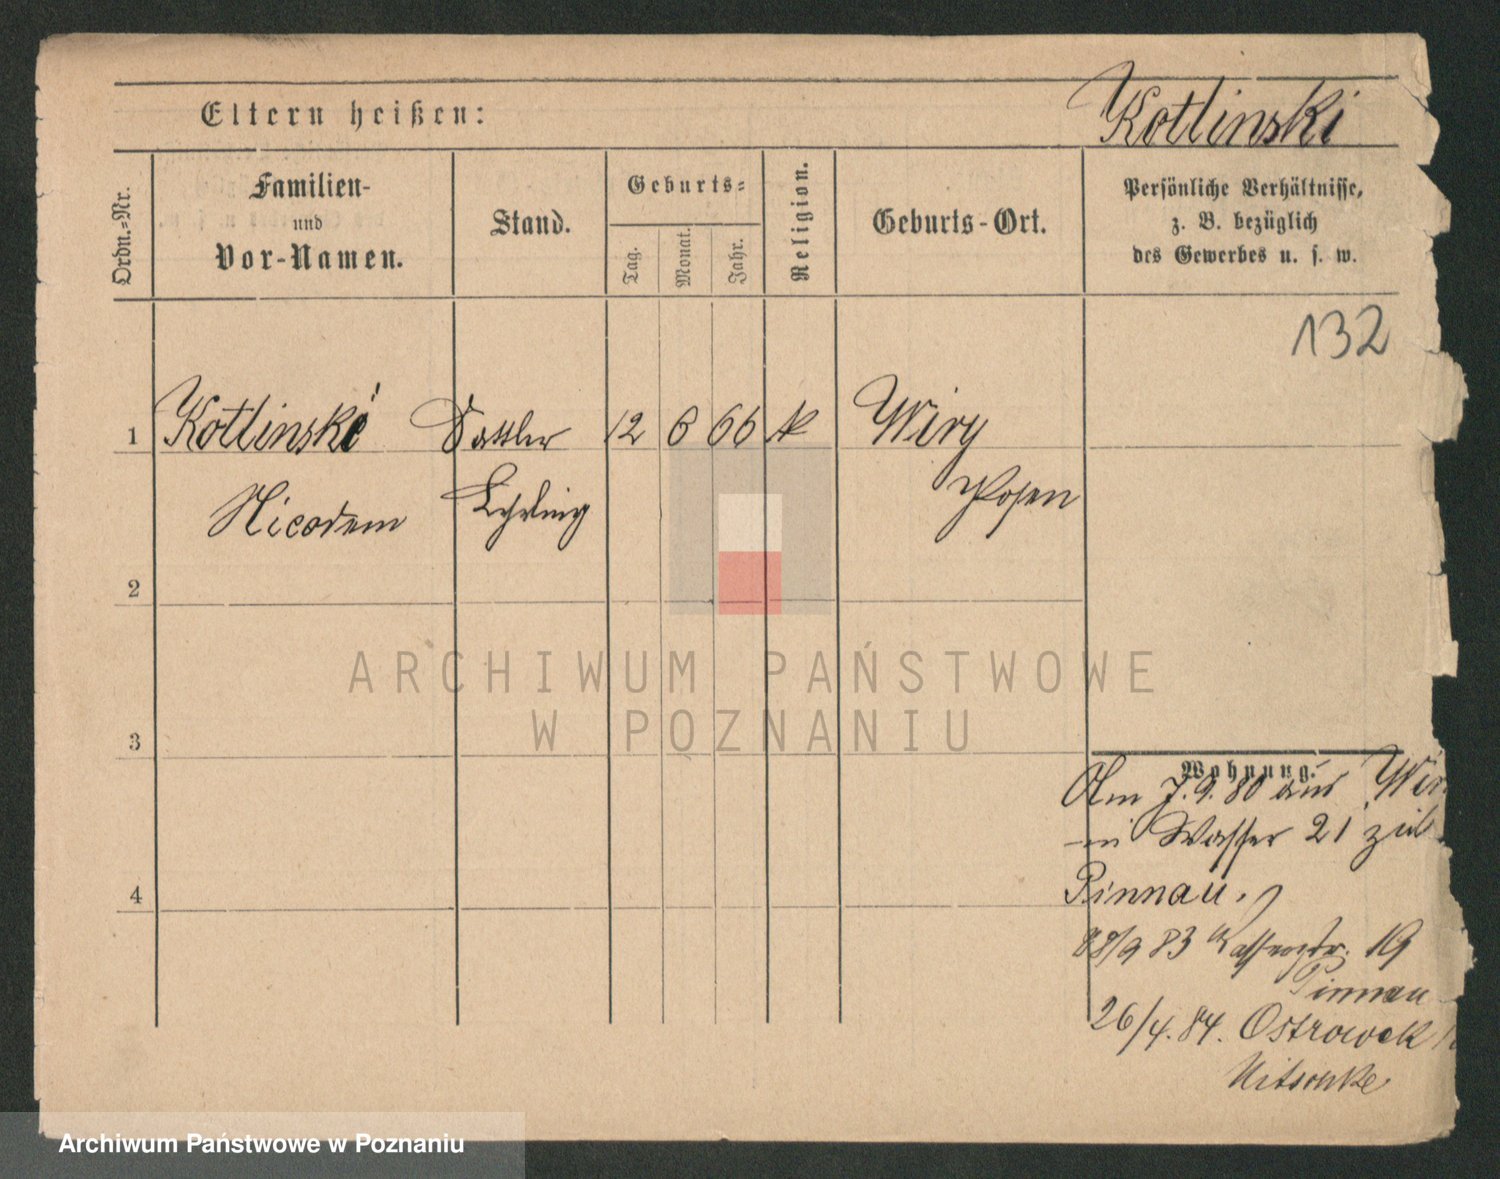 Eltern heißen:
Kotlinski
Ordn.-Nr.
Familien-
und
Vor-Namen.
Stand.
Geburts-
Tag.
Monat.
Jahr.
Religion.
Geburts-Ort.
Persönliche Verhältnisse,
z. B. bezüglich
des Gewerbes u. s. w.
132
1 Kotlinski Sattler 12 6 66 k Wiry
Nicodem Lehrling Posen
2
3
4
ARCHIWUM PAŃSTWOWE
W POZNANIU
Wohnung.
Am 7.9.80 aus Wir
in Wasser 21 zu
Pinnau.
9 83 19
Pinnau
26/4.84. Ostrowek
Nitschke
Archiwum Państwowe w Poznaniu